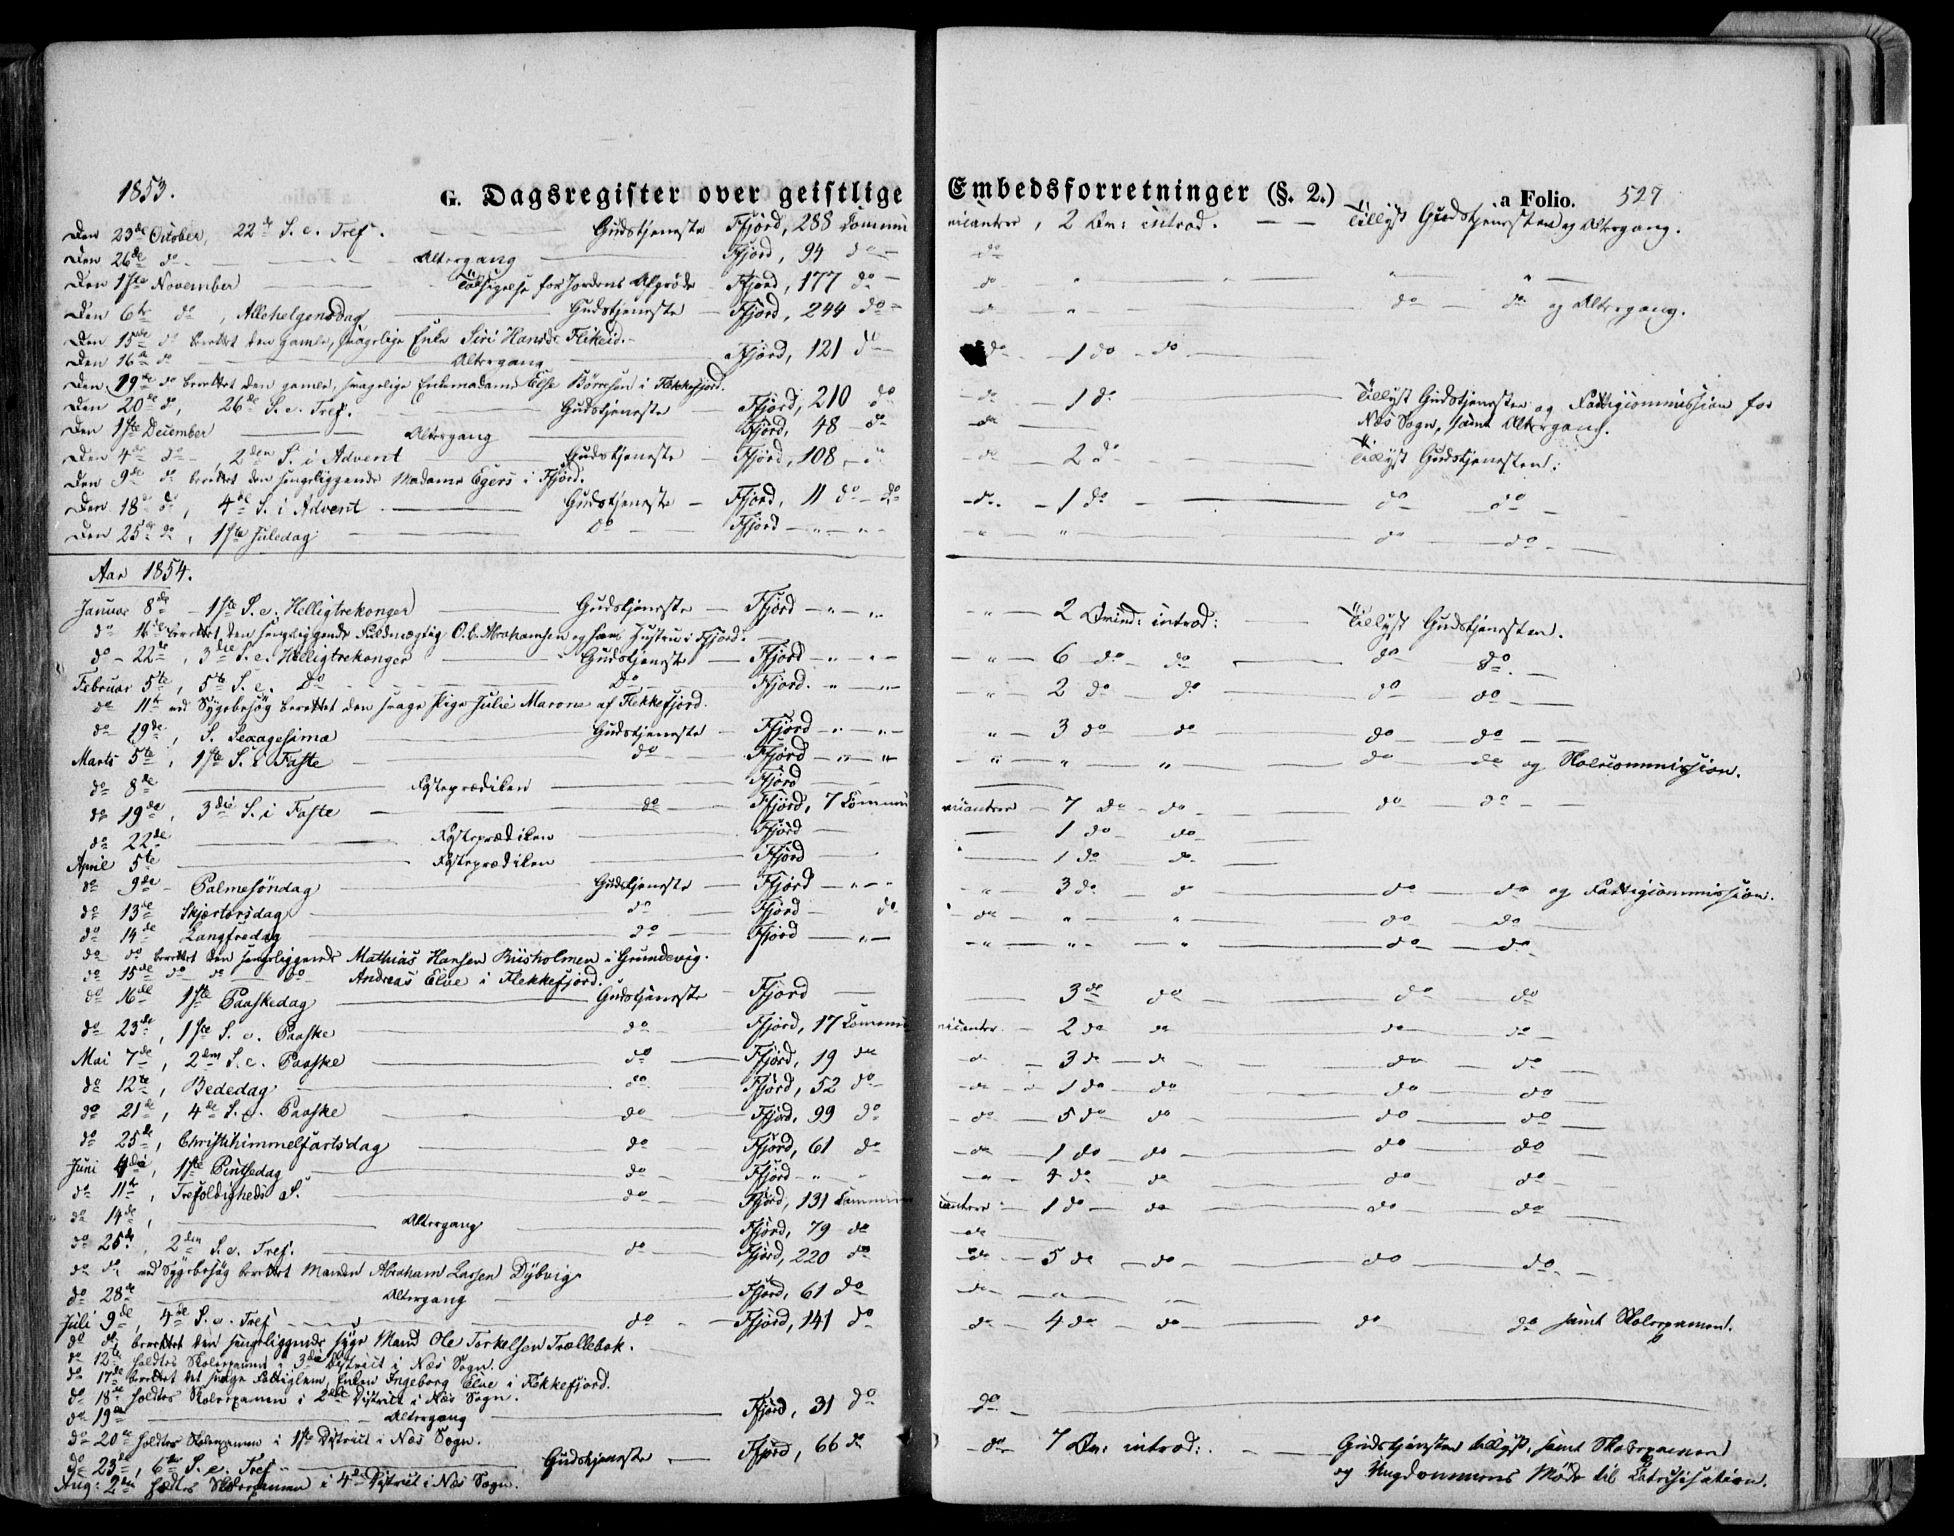 1853. G. Dagsregister over geistlige Embedsforretninger (§. 2.) a Folio. 527
Den 23de October, 22de S. e. Tref. — Gudstjeneste Ffjord, 288 Communicanter, 2 Qv: introd. — Tillyst Gudstjenesten og Altergang.
Den 26de do — Altergang — Ffjord, 94 do — do
Den 1ste November — Taksigelse for Jordens Afgrøde — Ffjord, 177 do — do " " "
Den 6te do, Allehelgensdag — Gudstjeneste — Ffjord, 244 do — do " — do — do og Altergang.
Den 15de do berettet den gamle, svagelige Enke Siri Hansd. Flikeid.
Den 16de do — Altergang — Ffjord, 121 do — do — 1 do — do
Den 19de do berettet den gamle, svagelige Enkemadame Else Börresen i Flekkefjord.
Den 20de do, 26de S. e. Tref. — Gudstjeneste — Ffjord, 210 do — do — 1 do — Tillyst Gudstjenesten og Fattigcommission for
Den 1ste December — Altergang — Ffjord, 48 — do — do — Næs Sogn, samt Altergang.
Den 4de do —, 2den S. i Advent — Gudstjeneste — Ffjord, 108 — do — do — 2 do — Tillyst Gudstjenesten.
Den 9de do berettet den sengeliggende Madame Egers i Ffjord.
Den 18de do, 4de S. i Advent — Gudstjeneste — Ffjord, 11 do — do — do — 1 do — do — do —
Den 25de do, 1ste Juledag — Do — Ffjord — " — " — " — " — do — do —
Aar 1854.
Januar 8de — 1ste S. e. Helligtrekonger — Gudstjeneste — Ffjord — " — " — " — 2 Qvind: introd: — Tillyst Gudstjenesten.
do 16de berettet den sengeliggende Fuldmægtig O. C. Abrahamsen og hans Hustru i Ffjord.
do — 22de, 3die S. e. Helligtrekonger — Gudstjeneste — Ffjord — " — " — " — 6 do — do — do — do —
Februar 5te, 5te S. e. Do — Do — Ffjord. " — " — " — 2 do — do — do — do —
do 11te ved Sygebesøg berettet den svage Pige Julie Marone af Flekkefjord.
do 19de, S. Sexagesima — Gudstjeneste — Ffjord — " — " — " — 3 do — do — do — do —
Marts 5te, 1ste S. i Faste — do — Ffjord — " — " — " — " — " — do — do og Skolecommission.
do 8de — Fasteprædiken — Ffjord —
do 19de, 3die S. i Faste — do — Ffjord, 7 Communicanter — 7 do — do — do — do —
do 22de — Fasteprædiken — Ffjord — 1 do — do —
April 5te — Fasteprædiken — Ffjord — 1 do — do —
do 9de — Palmesöndag — Gudstjeneste — Ffjord — " — " — " — 3 do — do — do — do og Fattigcommission.
do 13de Skjærtorsdag — do — Ffjord — do — do — " — " — do — do —
do 14de Langfredag — do — Ffjord — " — " — " — " — do — do —
do do berettet den sengeliggende Mathias Hansen Buisholmen i Grundevig.
do 15de do do do Andreas Elve i Flekkefjord.
do 16de 1ste Paaskedag — Gudstjeneste — Ffjord — 3 do — do — do — do
do 23de, 1ste S. e. Paaske — do — Ffjord, 17 Communicanter. — 2 do — do — do — do —
Mai 7de, 2den S. e. Paaske — do — Ffjord, 19 do — do — 3 do — do — do — do —
do 12te, Bededag — do — Ffjord, 52 do — do — 1 do — do — do — do —
do 21de, 4de S. e. Paaske — do — Ffjord, 99 do — do — 5 do — do — do — do —
do 25de, Christihimmelfartsdag — do — Ffjord, 61 do — do — 1 do — do — do — do —
Juni 4de, 1ste Pintsedag — do — Ffjord — " — " — 4 do — do — do — do —
do 11te, Trefoldigheds S. — do — Ffjord, 131 Communicanter — 1 do — do — do — do —
do 14de, — Altergang — Ffjord, 79 do — do —
do 25de, 2den S. e. Tref. — do — Ffjord, 220 do — do — 5 do — do — do — do —
do do ved Sygebesøg berettet Manden Abraham Larsen Dybvig
do 28de — Altergang — Ffjord, 61 do — do — " —
Juli 9de, 4de S. e. Tref — do — Ffjord, 141 do — do — 4 do — do — do — do samt Skoleexamen.
do do berettet den sengeliggende syge Mand Ole Torkelsen Trællebok.
do 12te holdtes Skoleexamen i 3die District i Næs Sogn.
do 17de berettet det svage Fattiglem, Enken Ingeborg Elve i Flekkefjord.
do 18de holdtes Skoleexamen i 2det District i Næs Sogn.
do 19de — Altergang — Ffjord, 31 do — do —
do 20de holdtes Skoleexamen i 1ste District i Næs Sogn.
do 23de, 6te S. e. Tref. — Gudstjeneste — Ffjord, 66 do — do — 7 Qv: introd: — Gudstjenesten tillyst, samt Skoleexamen
Aug: 2den holdtes Skoleexamen i 4de District i Næs Sogn. og Ungdommens Møde til Catechisation.